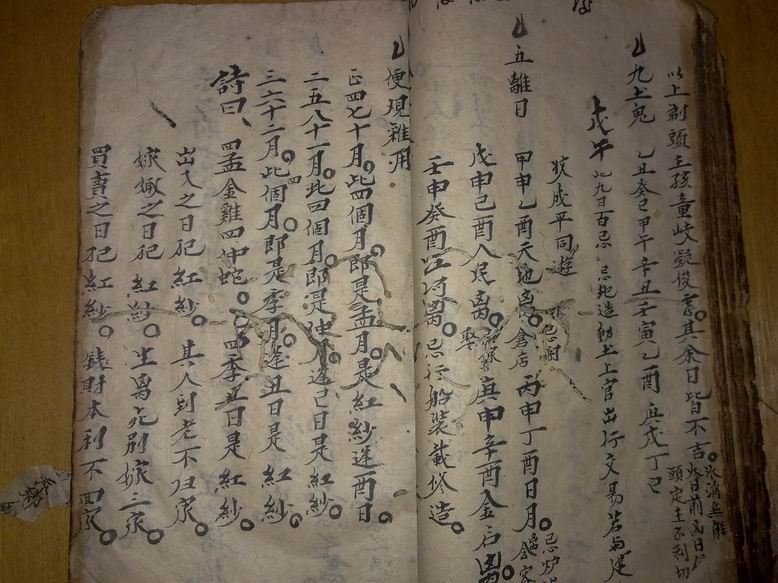 以上剃頭主孩童岐凝俊秀其余日皆不吉
九土鬼 乙丑癸巳甲午辛丑壬寅乙酉庚戌丁巳
戊午 此九日百忌 忌地造動土上官出行交易若与建
狄成平同遊
五離日 甲申乙酉天地离 忌倉店 丙申丁酉日月
戊申己酉人民离 庚申辛酉金石离
壬申癸酉江河离 忌行船装載修造
便現雜用
正四七十月此四個月即是孟月是紅紗逢酉日
二五八十一月此四個月即是仲月逢巳日是紅紗
三六十二月此四個月即是季月逢丑日是紅紗
詩曰 四孟金雞四仲蛇 四季丑日是紅紗
出入之日犯紅紗 其人到老不归家
嫁娶之日犯紅紗 生离死别嫁三家
買賣之日犯紅紗 錢財本利不回家